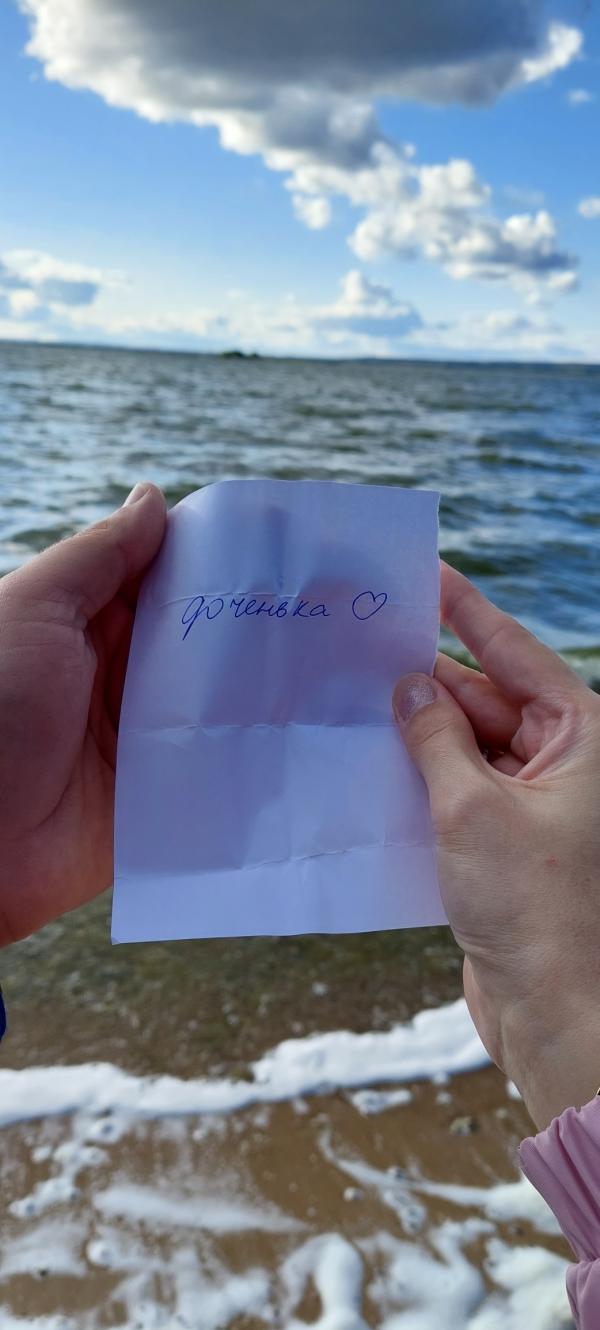 доченька ♡